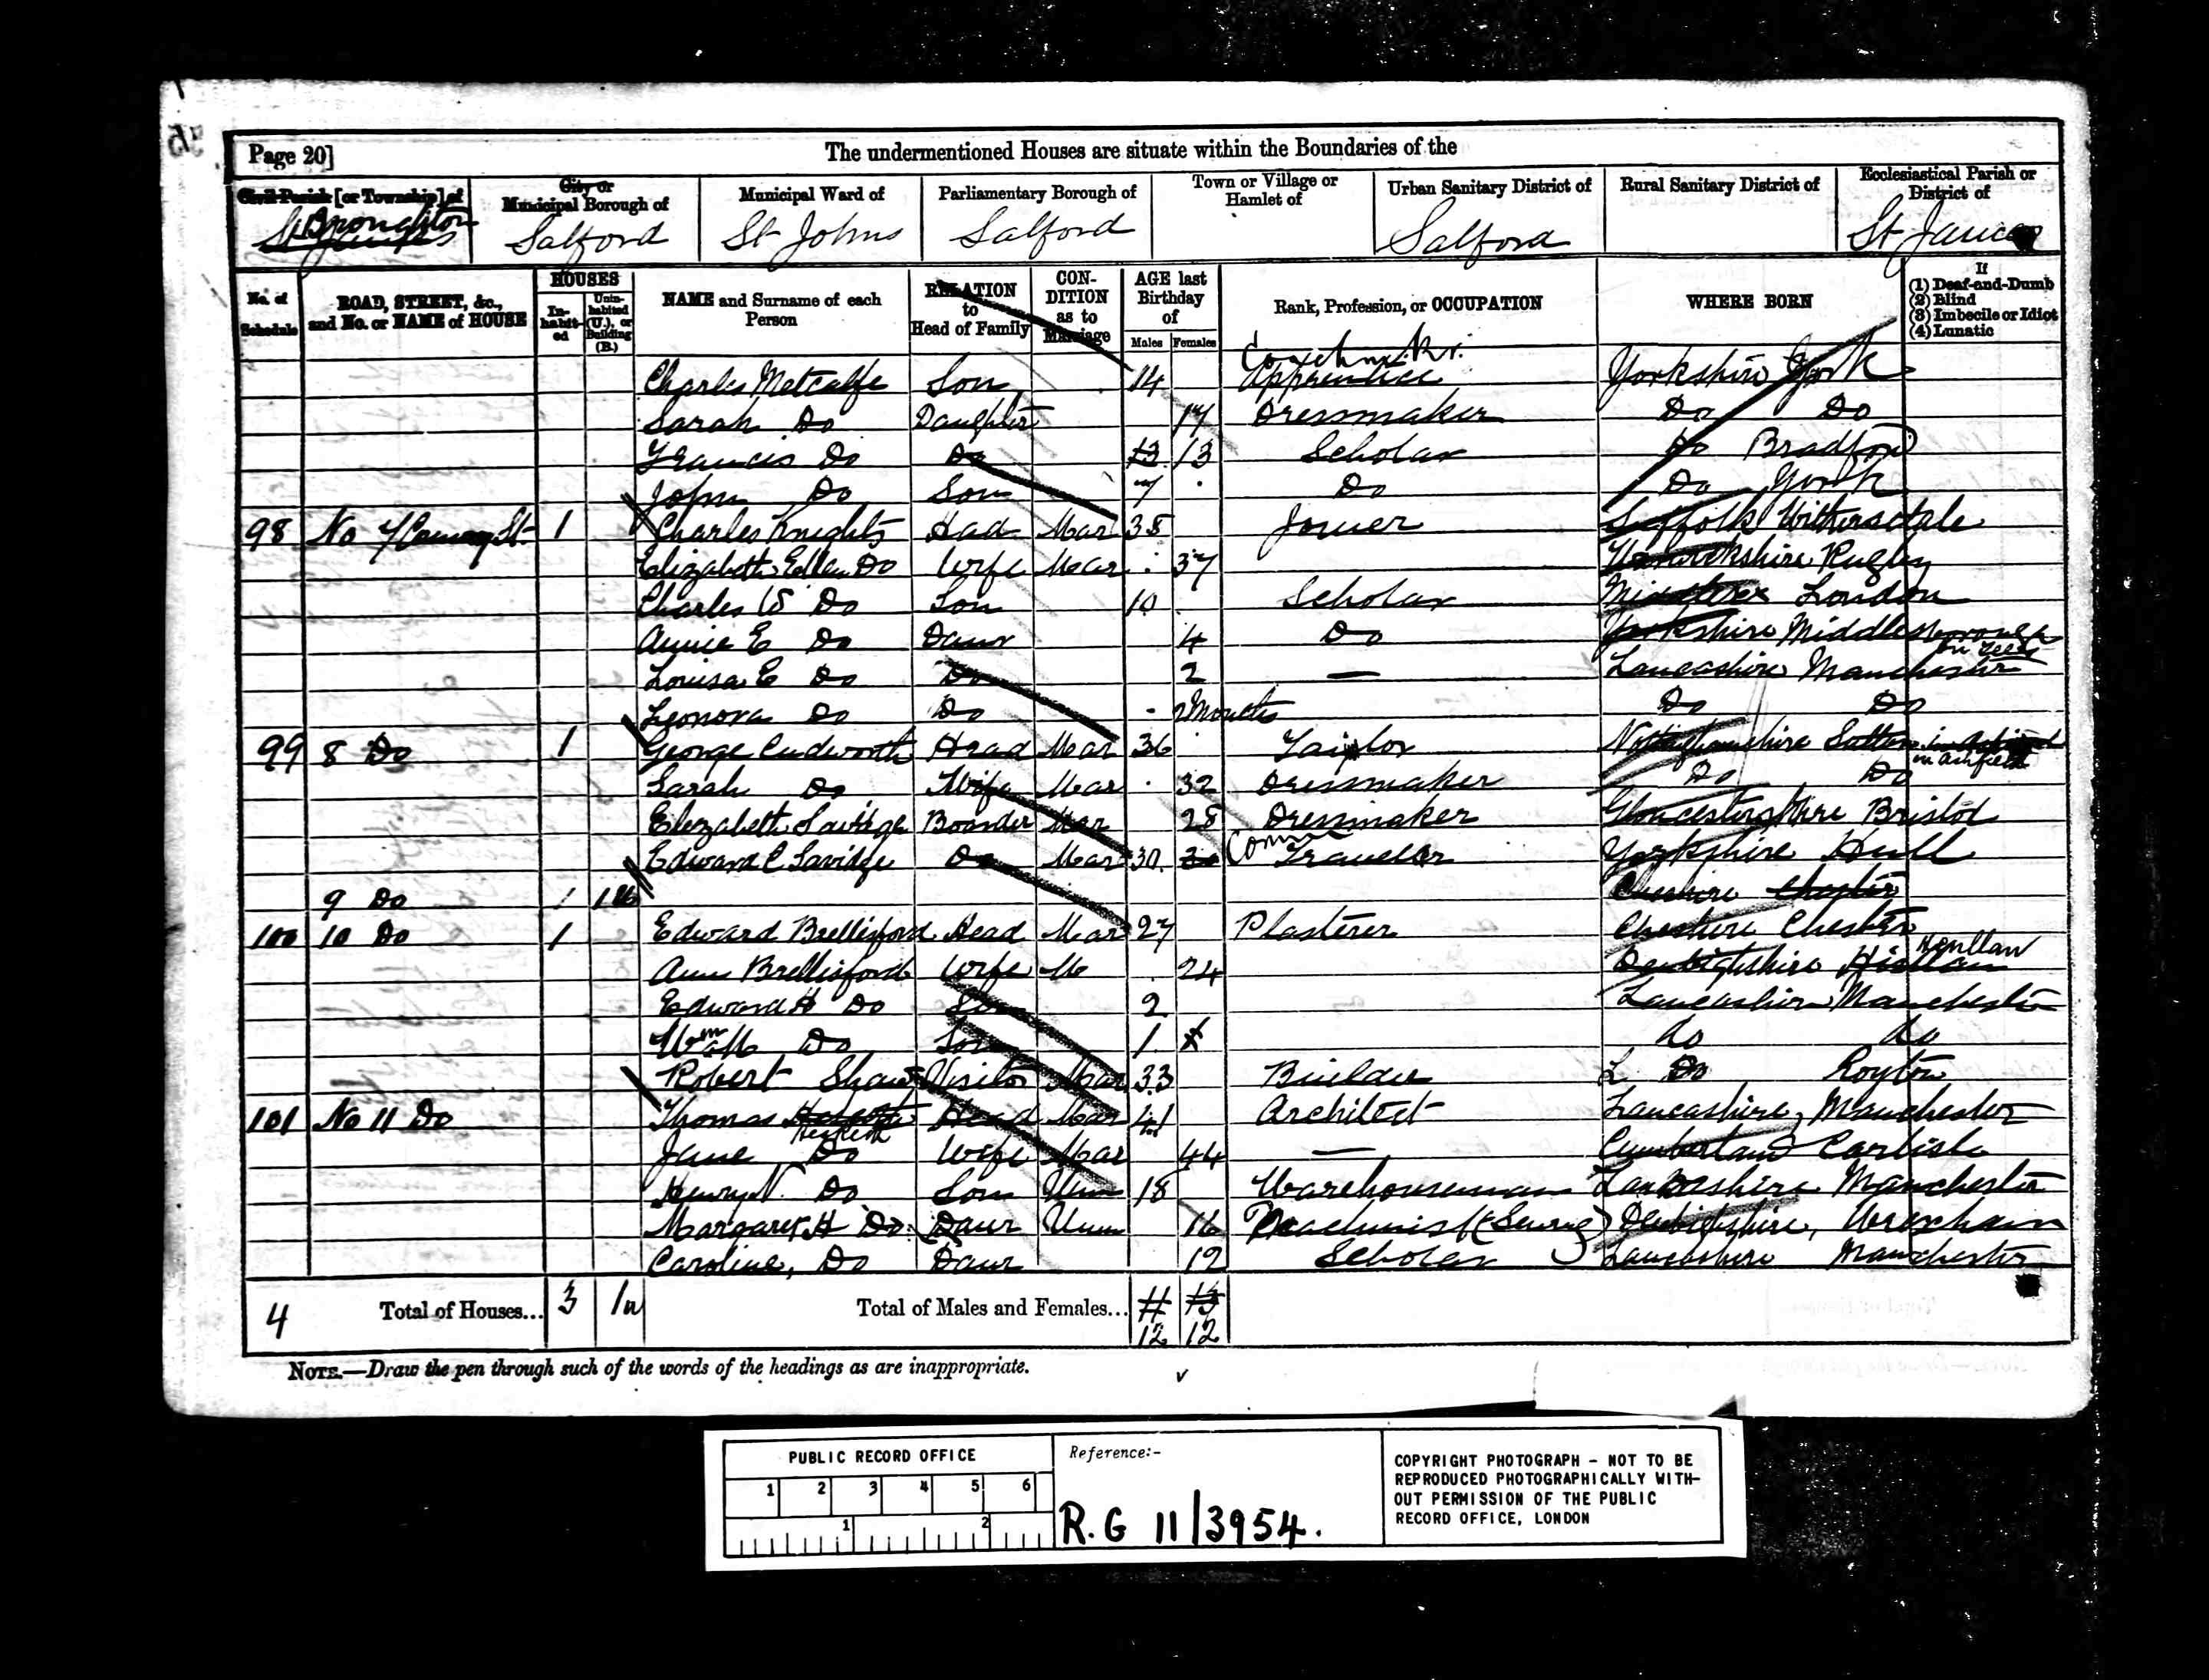 Page 20]
The undermentioned Houses are situate within the Boundaries of the
Civil Parish [or Township] of
City or Municipal Borough of
Municipal Ward of
Parliamentary Borough of
Town or Village or Hamlet of
Urban Sanitary District of
Rural Sanitary District of
Ecclesiastical Parish or District of
St James Broughton
Salford
St Johns
Salford
Salford
St James
No. of Schedule
ROAD, STREET, &c., and No. or NAME of HOUSE
HOUSES
In-habit-ed
Unin-habited (U.), or Building (B.)
NAME and Surname of each Person
RELATION to Head of Family
CON-DITION as to Marriage
AGE last Birthday of
Males Females
Rank, Profession, or OCCUPATION
WHERE BORN
If
(1) Deaf-and-Dumb
(2) Blind
(3) Imbecile or Idiot
(4) Lunatic
Charles Metcalfe Son 14 Apprentice Yorkshire York
Sarah Do Daughter 17 Dressmaker Do Do
Francis Do Do 13 13 Scholar Do Bradford
John Do Son 7 Do Do York
98 No 7 St 1 Charles Knights Head Mar 38 Joiner Suffolk Withersdale
Elizabeth Ellen Do Wife Mar 37 Warwickshire Rugby
Charles W Do Son 10 Scholar Middlesex London
Annie E Do Daur 4 Do Yorkshire Middlesborough on Tees
Louisa E Do Do 2 — Lancashire Manchester
Leonora Do Do 2 Months Do Do
99 8 Do 1 George Cudworth Head Mar 36 Tailor Nottinghamshire Sutton in Ashfield
Sarah Do Wife Mar 32 Dressmaker Do Do
Elizabeth Savidge Boarder Mar 28 Dressmaker Gloucestershire Bristol
Edward C Savidge Do Mar 30 30 Comm Traveler Yorkshire Hull
9 Do 1 1 U Cheshire Chester
100 10 Do 1 Edward Brellisford Head Mar 27 Plasterer Cheshire Chester
Ann Brellisford Wife M 24 Denbighshire Henllan
Edward H Do Son 2 Lancashire Manchester
Wm Do Son 1 1 do do
Robert Shaw Visitor Mar 33 Builder L Do Royton
101 No 11 Do Thomas Head Mar 41 Architect Lancashire, Manchester
Jane Do Wife Mar 44 — Cumberland Carlisle
Henry N. Do Son Unm 18 Warehouseman Lancashire Manchester
Margaret H Do. Daur Unm 16 Machinist (Sewing) Denbighshire, Wrexham
Caroline, Do Daur 12 Scholar Lancashire Manchester
4 Total of Houses... 3 1u Total of Males and Females... 11 13
12 12
NOTE.—Draw the pen through such of the words of the headings as are inappropriate.
PUBLIC RECORD OFFICE
1 2 3 4 5 6
1 2
Reference:-
R.G 11/3954.
COPYRIGHT PHOTOGRAPH – NOT TO BE
REPRODUCED PHOTOGRAPHICALLY WITH-
OUT PERMISSION OF THE PUBLIC
RECORD OFFICE, LONDON